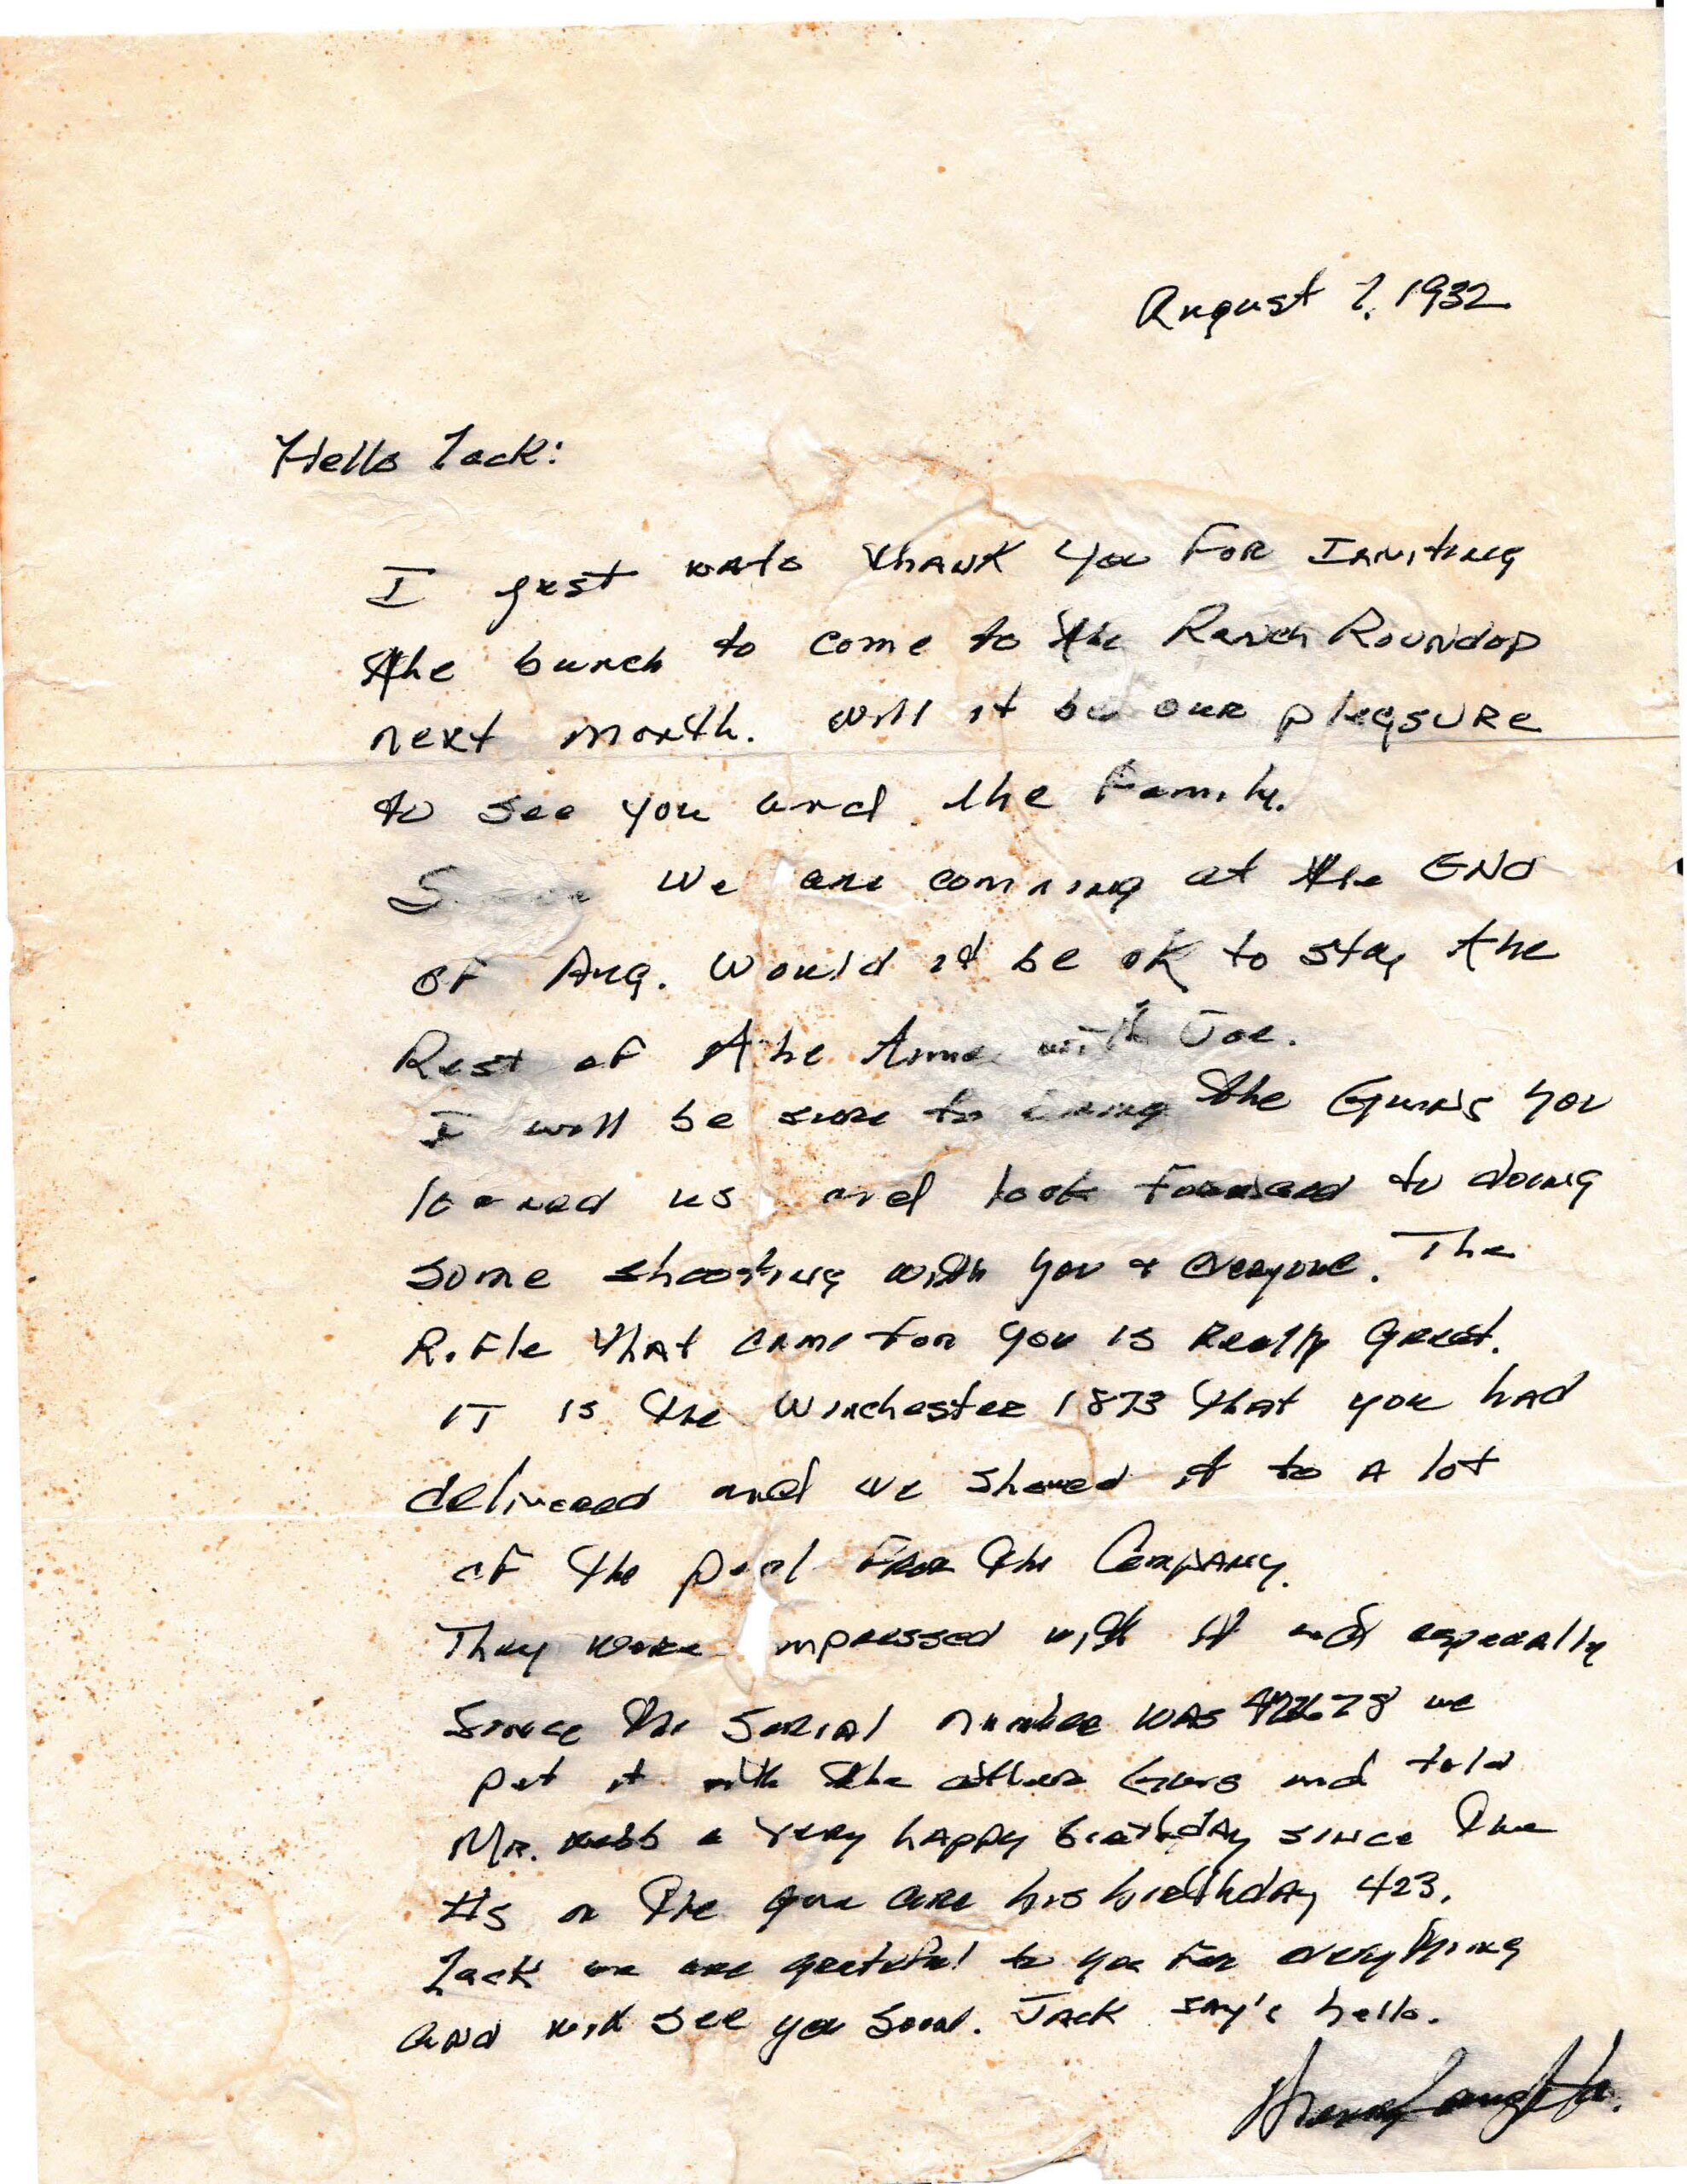 August 7, 1932
Hello Zack:
I just wato thank you For Inviting
the bunch to come to the Ranch Roundop
next month. Will it be our pleasure
to see you and the Family.
We are comming at the END
of Aug. Would it be ok to stay the
Rest of the time with Joe.
I will be sure to bring the Guns you
loaned us and look Forward to doing
some shooting with you + everyone. The
Rifle that came For you is Really Great.
IT is the Winchester 1873 that you had
delivered and we showed it to a lot
of the from the Company.
They were impressed with it and especially
since the Serial number was we
put it with the other Guns and told
Mr. Webb a very happy birthday since the
#s on the gun are his birthday 423.
Zack we are grateful to you For everything
and will see you soon. Jack say's hello.